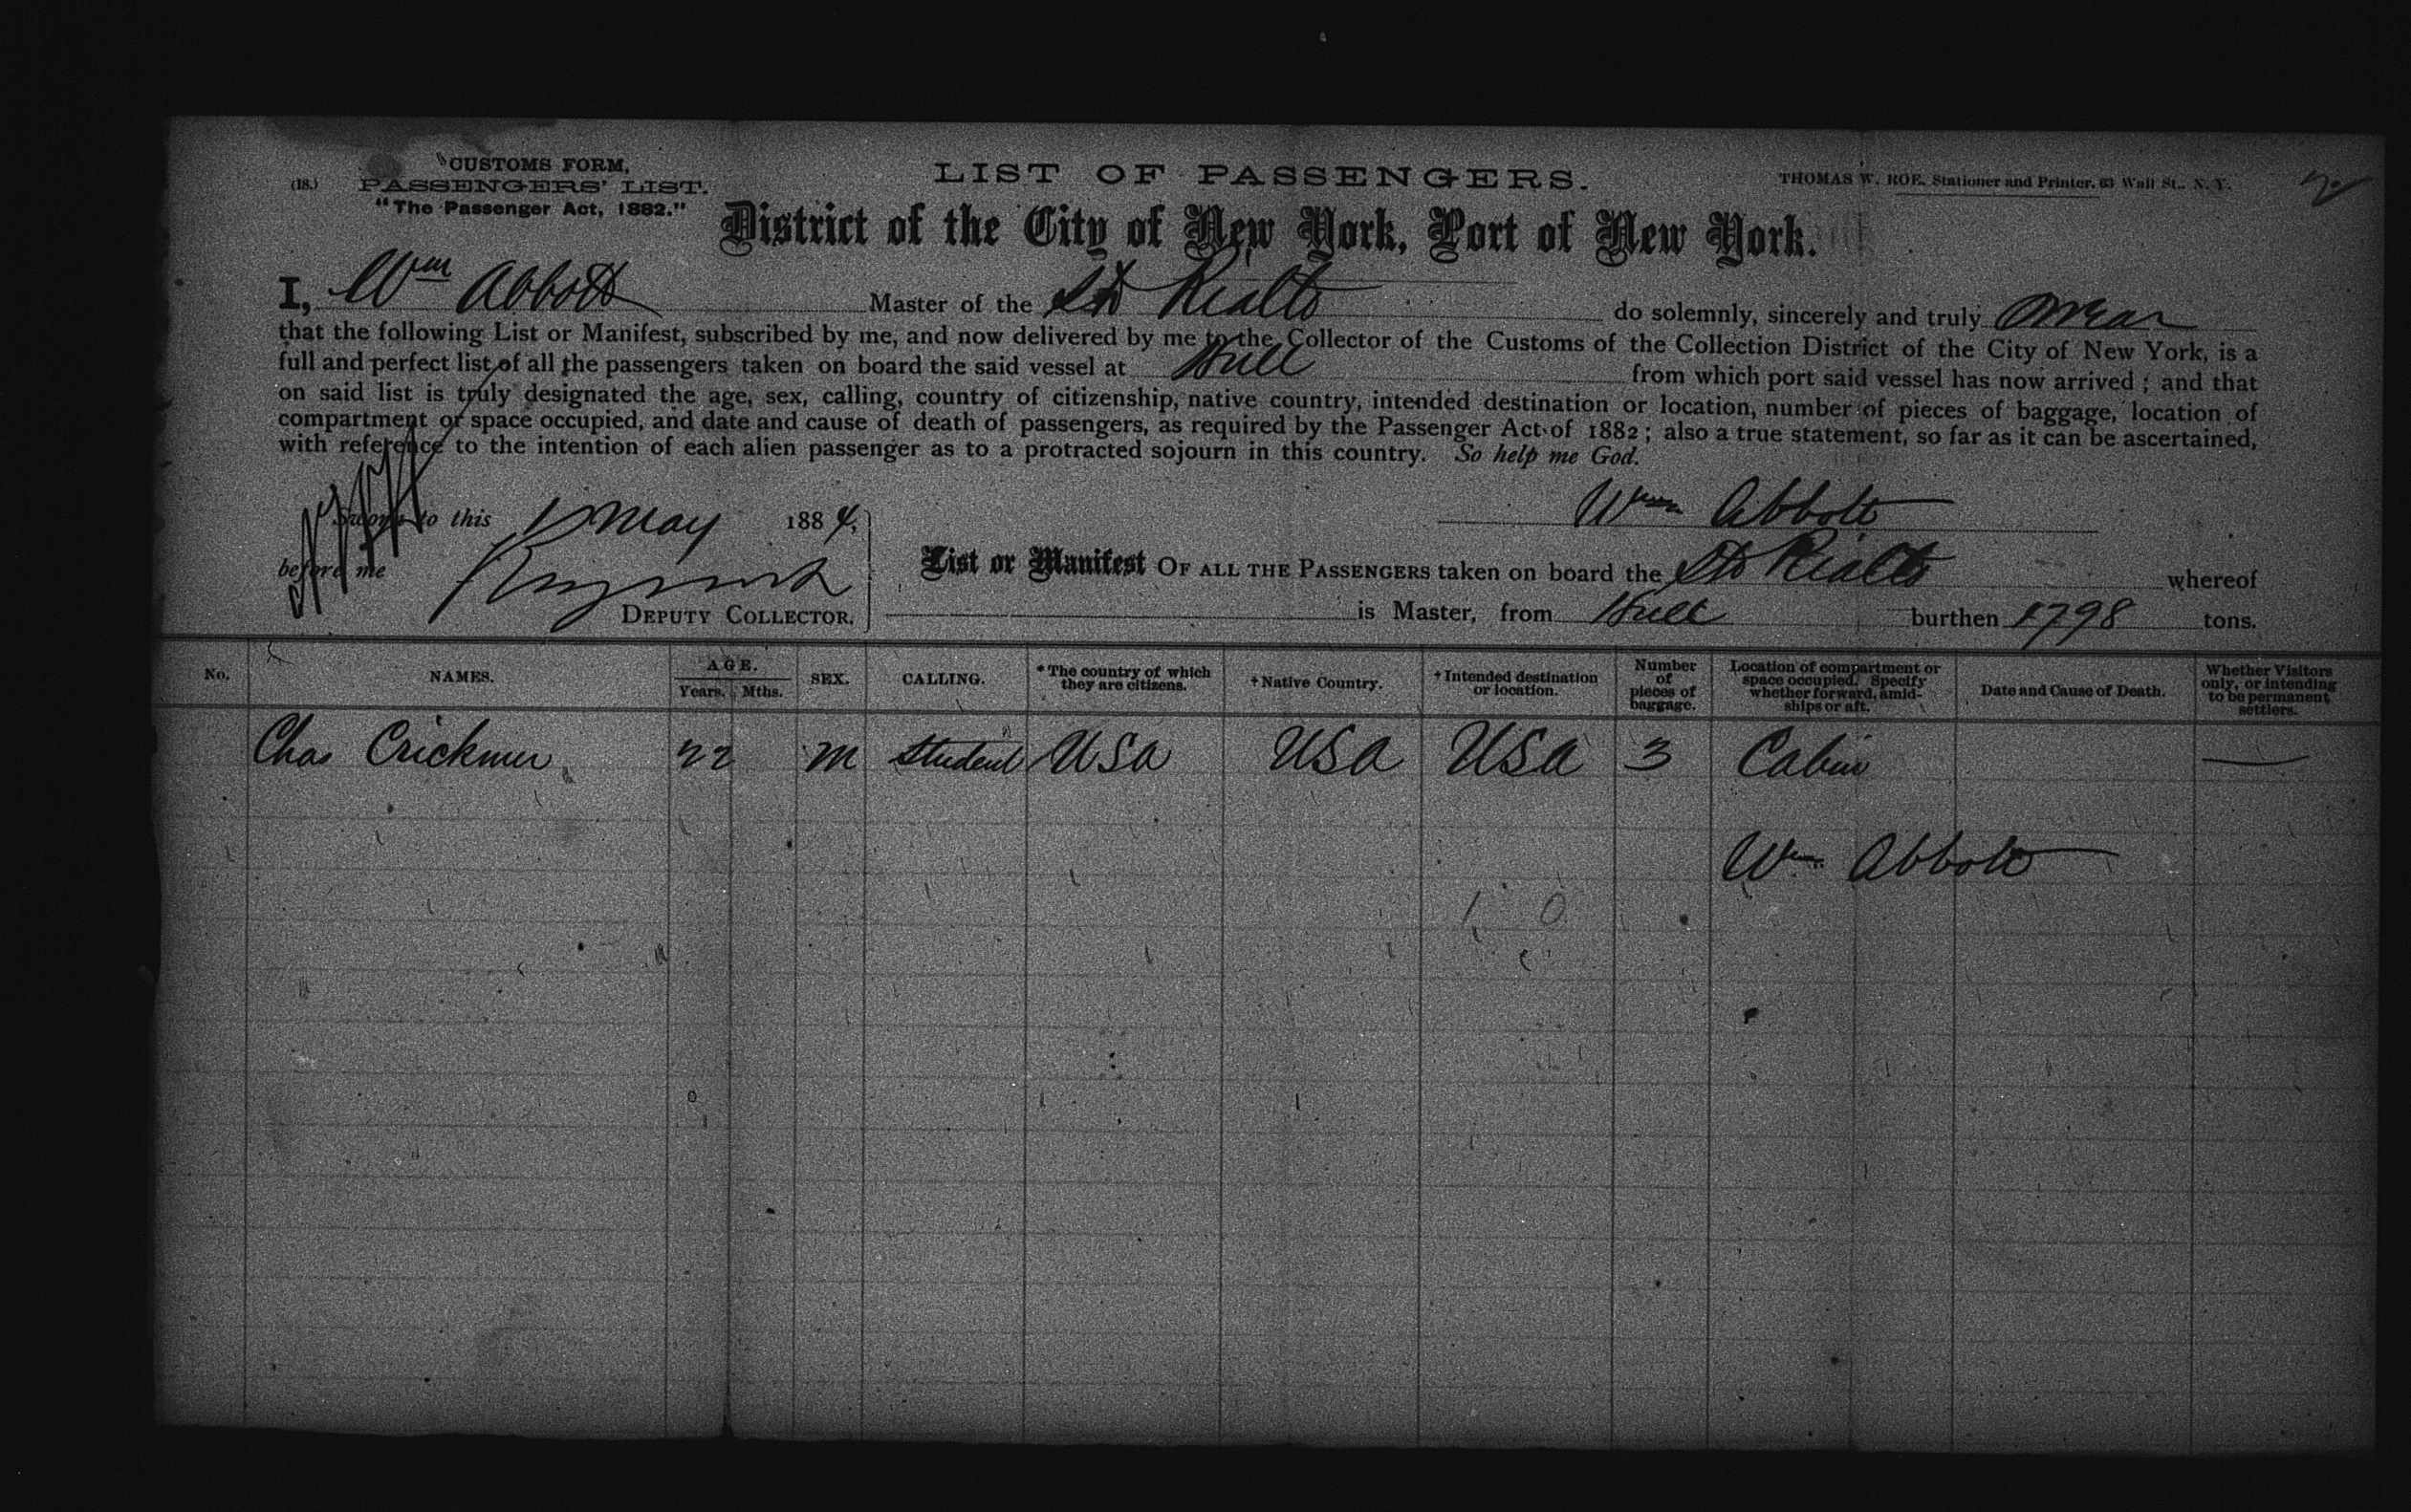 CUSTOMS FORM,
(18.) PASSENGERS' LIST.
"The Passenger Act, 1882."
LIST OF PASSENGERS.
THOMAS W. ROE, Stationer and Printer, 63 Wall St., N. Y.
District of the City of New York, Port of New York.
I, Wm Abbott Master of the Rialto do solemnly, sincerely and truly swear
that the following List or Manifest, subscribed by me, and now delivered by me to the Collector of the Customs of the Collection District of the City of New York, is a
full and perfect list of all the passengers taken on board the said vessel at Hull from which port said vessel has now arrived; and that
on said list is truly designated the age, sex, calling, country of citizenship, native country, intended destination or location, number of pieces of baggage, location of
compartment or space occupied, and date and cause of death of passengers, as required by the Passenger Act of 1882; also a true statement, so far as it can be ascertained,
with reference to the intention of each alien passenger as to a protracted sojourn in this country. So help me God.
Sworn to this 1 May 1884.
Wm Abbott
before me
DEPUTY COLLECTOR.
List or Manifest OF ALL THE PASSENGERS taken on board the Rialto whereof
is Master, from Hull burthen 1798 tons.
No. NAMES. AGE. Years. Mths. SEX. CALLING. *The country of which they are citizens. †Native Country. †Intended destination or location. Number of pieces of baggage. Location of compartment or space occupied. Specify whether forward, amidships or aft. Date and Cause of Death. Whether Visitors only, or intending to be permanent settlers.
Chas Crickmer 22 M Student USA USA USA 3 Cabin —
Wm Abbott
1 0